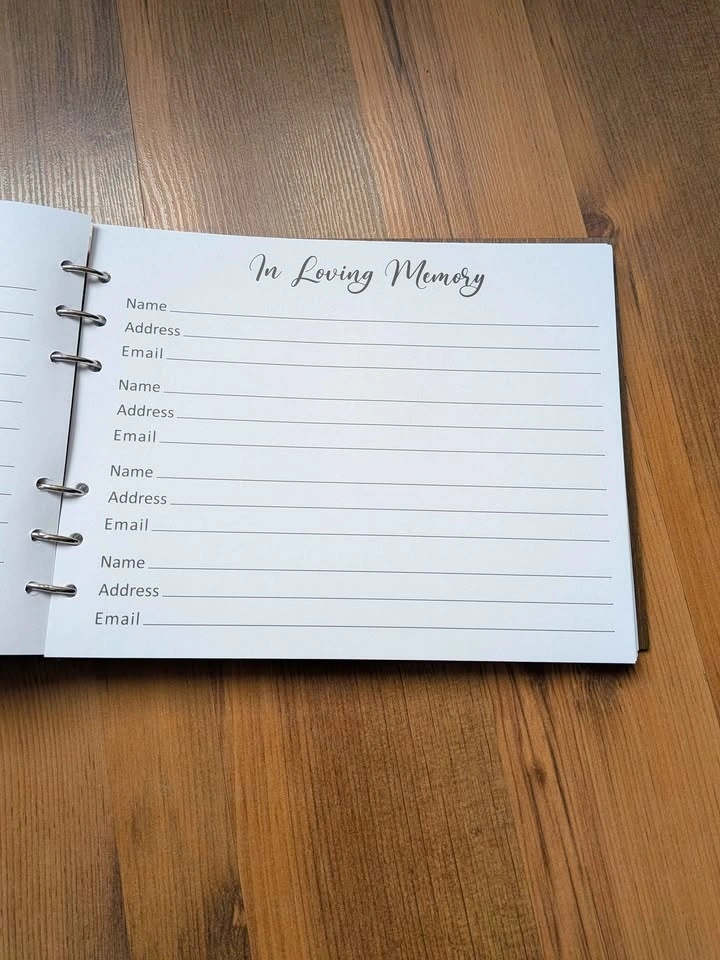 In Loving Memory
Name
Address
Email
Name
Address
Email
Name
Address
Email
Name
Address
Email